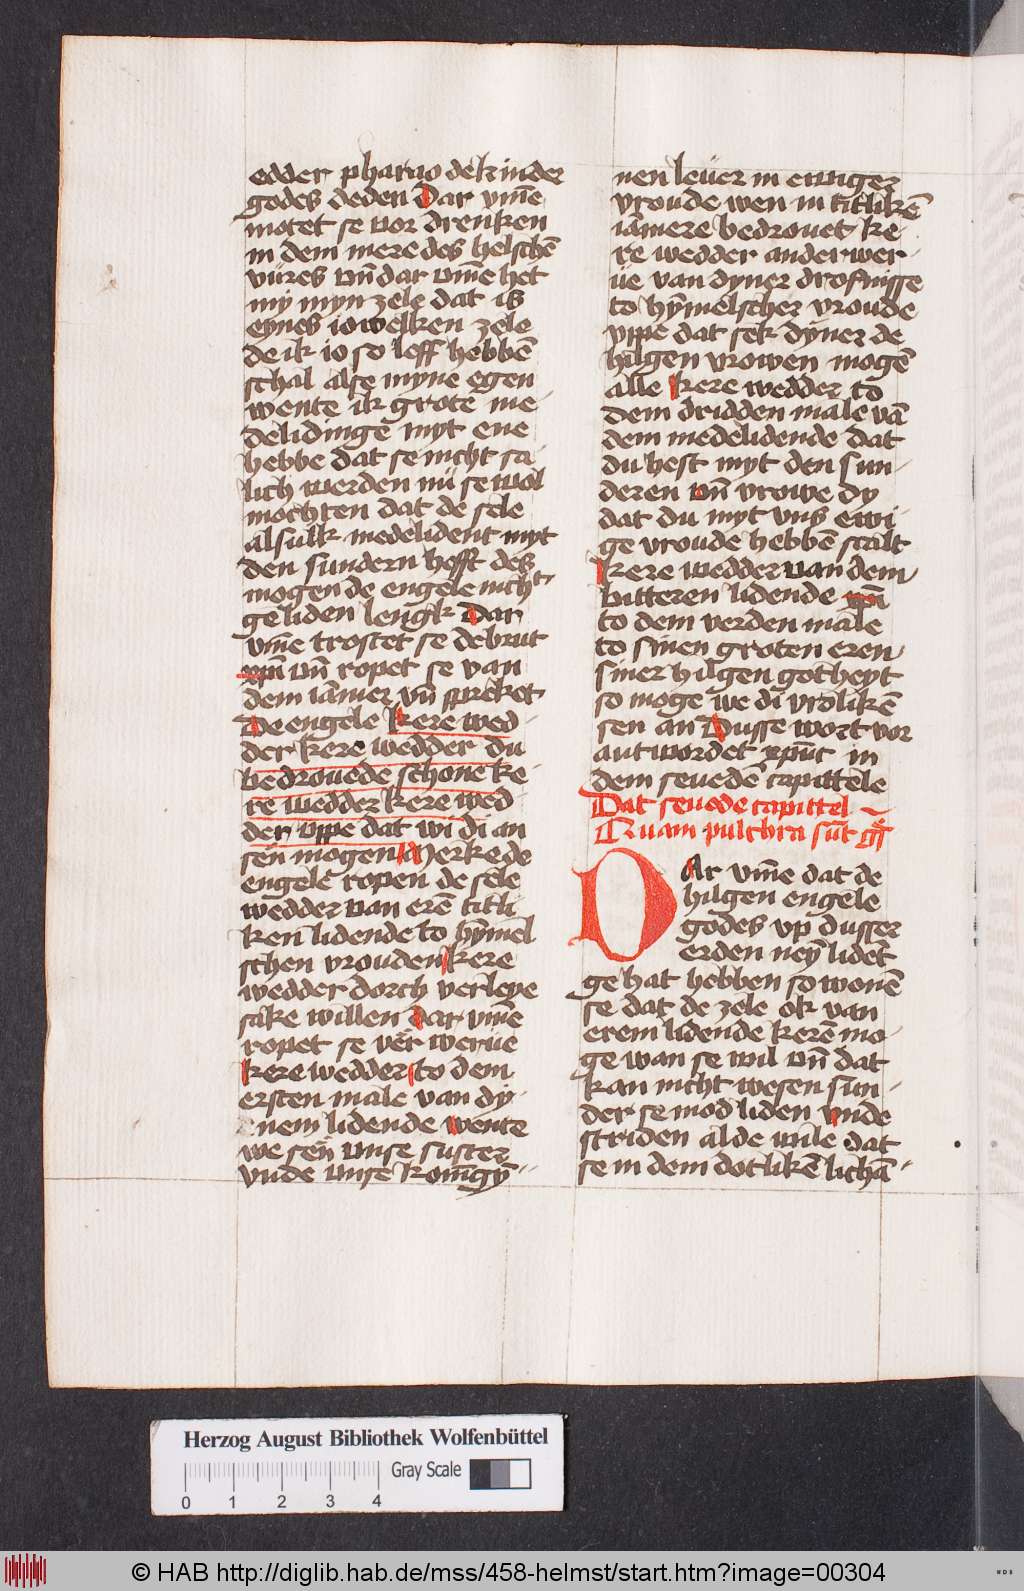 edder pharao de kinder
godes deden Dar vm̄e
motet se vor drenken
in dem mere des helschē
vüres vn̄ dar vm̄e het
my myn zele dat is
eynes iowelken zele
de ik io so leff hebbē
schal alse myne egen
wente ik grote me-
delidinge myt ene
hebbe dat se nicht sa-
lich werden nü se wol
mochten dat de sele
alsulk medelident myt
den sundern hefft des
mogen de engele nicht
geliden lengk Dar
vm̄e trostet se de brut
xp̄i vn̄ ropet se van
dem iāmer vn̄ spreket
De engele kere wed-
der kere wedder du
bedrouede schone ke-
re wedder kere wed-
der vppe dat wi di an
sen mogen Merke de
engele ropen de sele
wedder van erē titli
ken lidende to hȳmel
schen vrouden kere
wedder dorch verleye
sake willen Dar vm̄e
ropet se vēr werue
kere wedder to dem
ersten male van dy-
nem lidende wente
we sen vnse suster
vnde vnse konīgȳ-
nen leuer in ewiger
vroude wen in titlikē
iāmere bedrouet ke-
re wedder anderwer-
ue van dyner drofnisse
to hȳmelscher vroude
vppe dat sek dyner de
hilgen vrowen mogē
alle kere wedder to
dem dridden male vā
dem medelidende dat
du hest myt den sun-
deren vn̄ vrowe dy
dat du myt vns ewi-
ge vroude hebbē scalt
kere wedder van dem
bitteren lidende xp̄i
to dem verden male
to sinen groten eren
siner hilgen gotheyt
so moge we di vrolikē
sen an Dusse wort vor
antwordet xp̄us in
dem seuedē capittele
Dat seuede capittel
Quam pulchra sūt gͬ
DAr vm̄e dat de
hilgen engele
godes vp dusser
erden neȳ lidēt
ge hat hebben so wonē
se dat de zele ok van
erem lidende kerē mo-
ge wan se wil vn̄ dat
kan nicht wesen sun-
der se mod liden vnde
striden alde wile dat
se in dem dotlikē lichā-
Herzog August Bibliothek Wolfenbüttel
Gray Scale
0 1 2 3 4
© HAB http://diglib.hab.de/mss/458-helmst/start.htm?image=00304